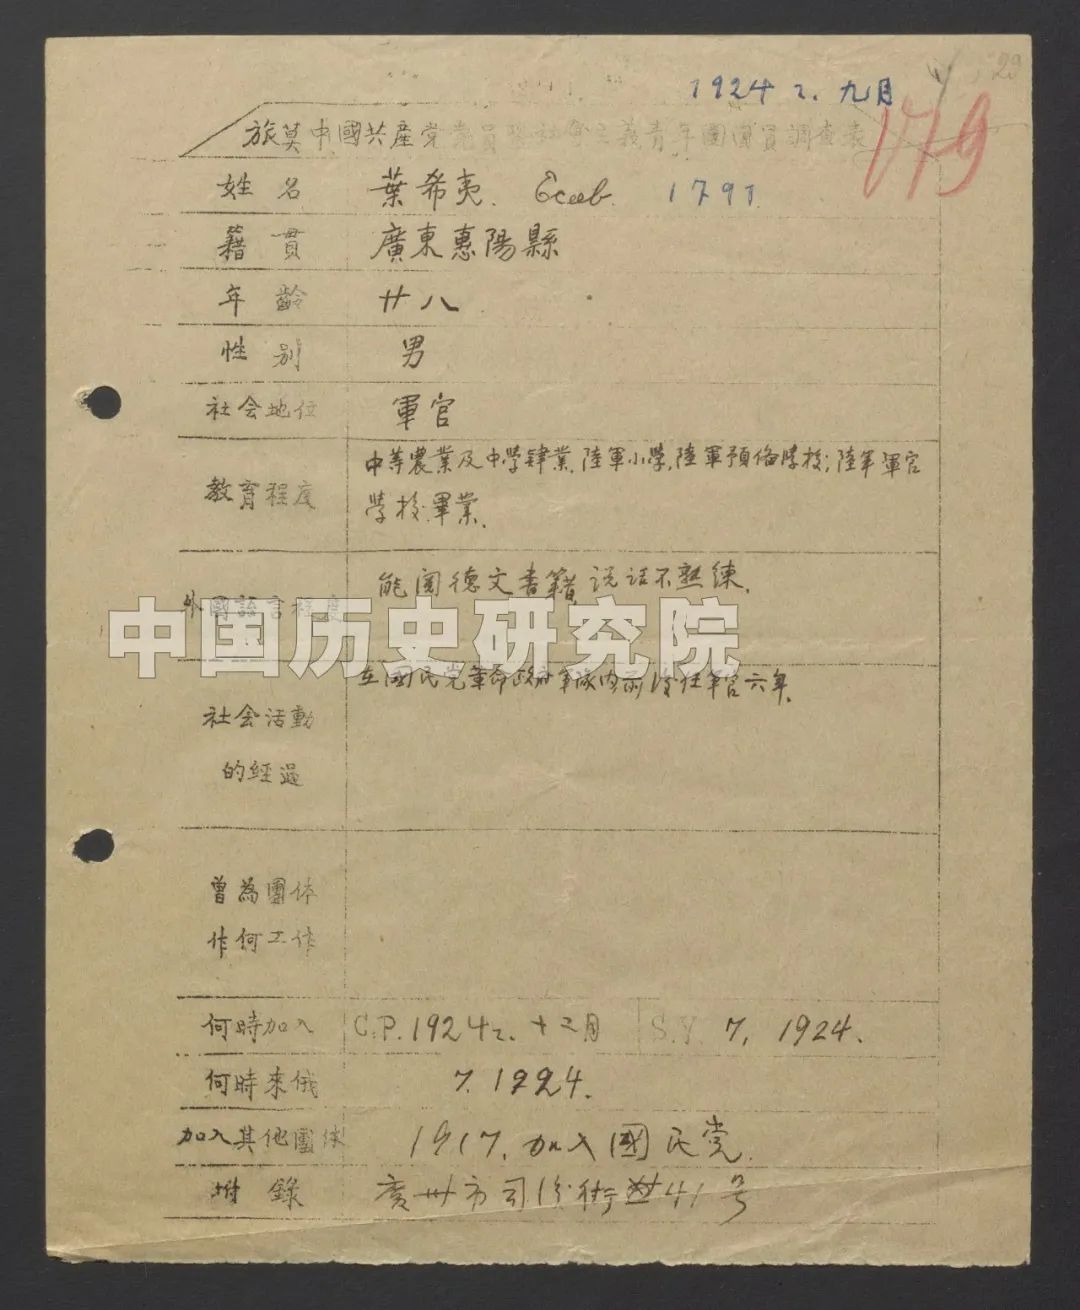 29
1924 г. 九月
179
旅莫中國共産党党員及社会主義青年團團員調查表
姓名 葉希夷. 1797
籍貫 廣東惠陽縣
年齡 廿八
性别 男
社会地位 軍官
教育程度 中等農業及中学肄業, 陸軍小學, 陸軍預备学校; 陸軍軍官
学校畢業.
外國語言程度 能閱德文書籍, 说话不熟練.
中国历史研究院
社会活動的經過 在國民党革命政府軍隊内前後任軍官六年.
曾為團体作何工作
何時加入 C.P. 1924 г. 十二月 S.Y. 7, 1924.
何時來俄 7. 1924.
加入其他團体 1917. 加入國民党.
附錄 廣州市司後街 41号